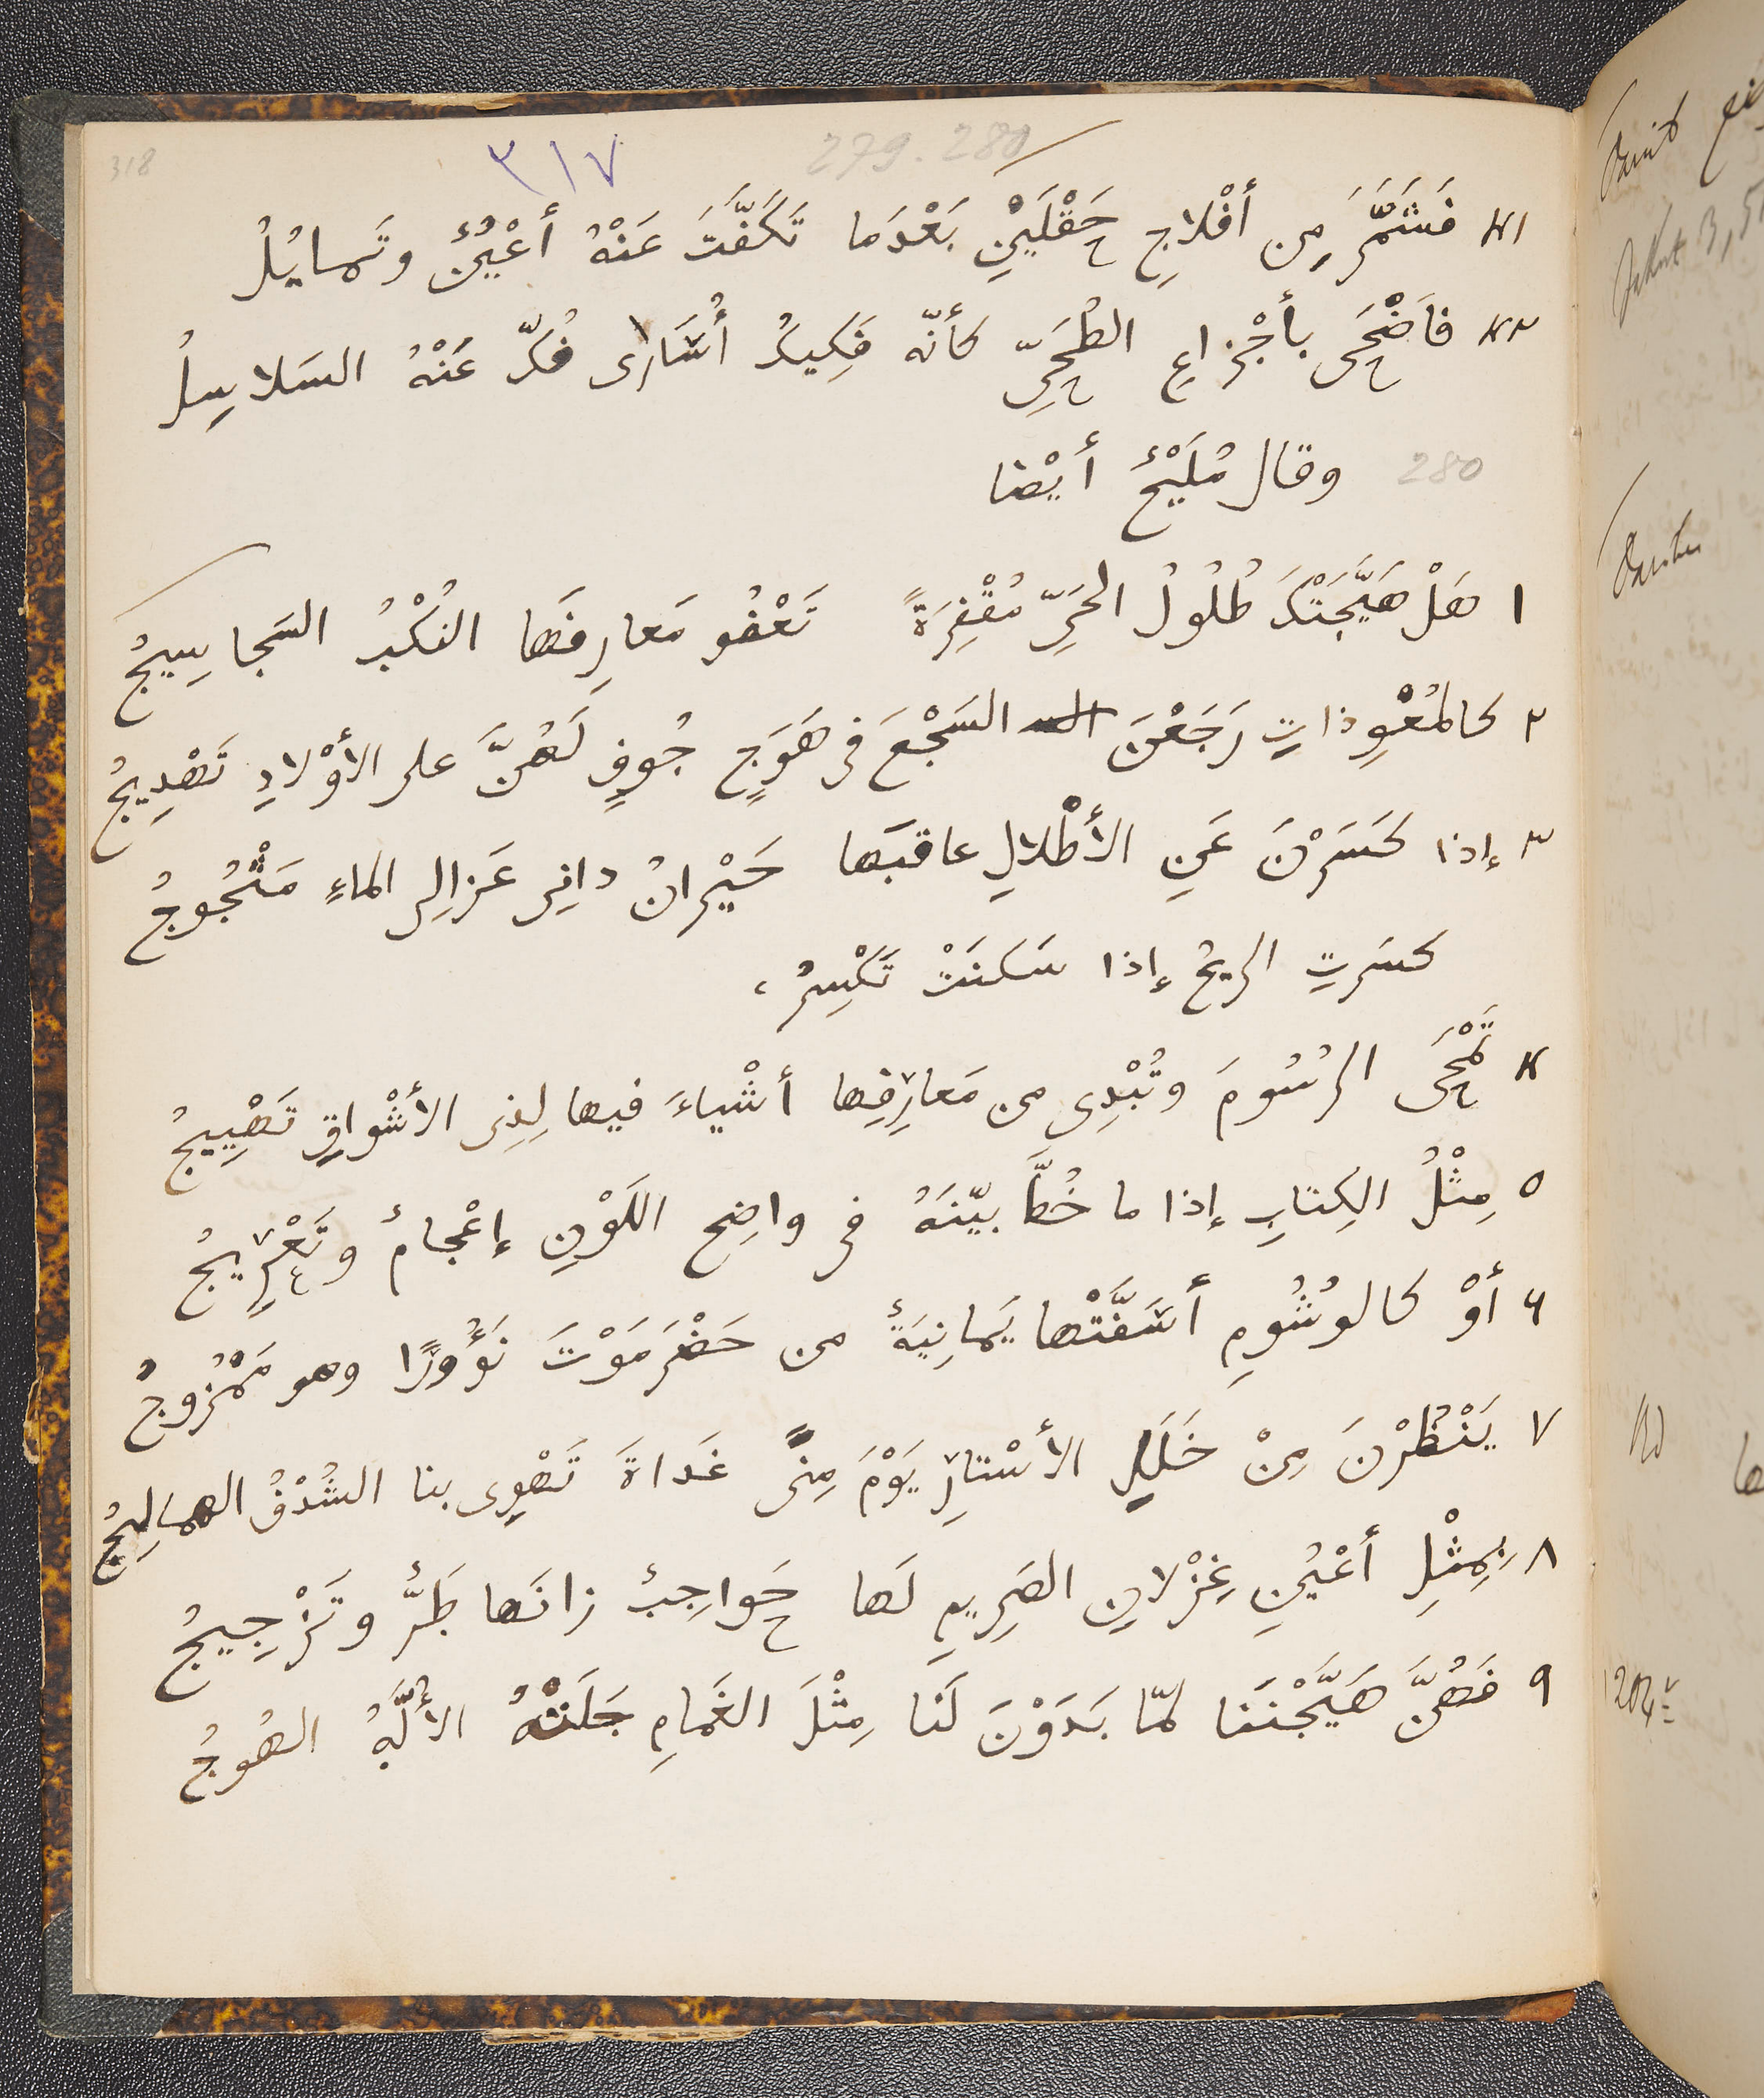 318
٣١٧
279. 280
٤١ فَشَمَّرَ مِن أفْلاجِ حَقْلَيْنِ بَعْدَما تَكَفَّتَ عَنْهُ أعْيُنٌ وتَمايُلُ
٤٢ فاَضْحَى بأجْزاعِ الطُحَىِّ كأنّه فَكِيكُ أُسَارى فُكَّ عَنْهُ السَلاسِلُ
280 وقال مُلَيْحٌ أيْضا
١ هَلْ هَيَّجَتْكَ طُلُولُ الحَىِّ مُقْفِرَةً تَعْفُو مَعارِفَها النُكْبُ السَجاسِيجُ
٢ كالمُعْوِذاتِ رَجَعْنَ السَجْعَ فى هَوَجٍ جُوفٍ لَهُنَّ على الأوْلادِ تَهْدِيجُ
٣ إذا كَسَرْنَ عَنِ الأطْلالِ عاقبَها حَيْرانُ دانِى عَزالِى الماءِ مَثْجُوجُ
كسَرتِ الريحُ إذا سَكنَتْ تَكْسِرُ،
٤ تَمْحَى الرُسُومَ وتُبْدِى من مَعارِفِها أشْياءَ فيها لِذِى الأشْواقِ تَهْيِيجُ
٥ مِثْلُ الكِتابِ إذا ما خُطَّ بيّنَهُ فى واضِحِ اللَوْنِ إعْجامٌ وتَعْرِيجُ
٦ أوْ كالوُشُومِ أسَفَّتْها يَمانِيَةٌ من حَضْرَمَوْتَ نَؤُورًا وهو مَمْزُوجُ
٧ يَنْظُرْنَ مِنْ خَلَلِ الأسْتارِ يَوْمَ مِنًى غَداةَ تَهْوِى بنا الشُدْفُ الهمالِيجُ
٨ بِمِثْلِ أعْيُنِ غِزْلانِ الصَرِيمِ لَها حَواجِبٌ زانَها طَرٌّ وتَزْجِيجُ
٩ فَهُنَّ هَيَّجْنَنا لمّا بَدَوْنَ لَنا مِثْلَ الغَمامِ جَلَتْهُ الأُلَّهُ الهُوجُ